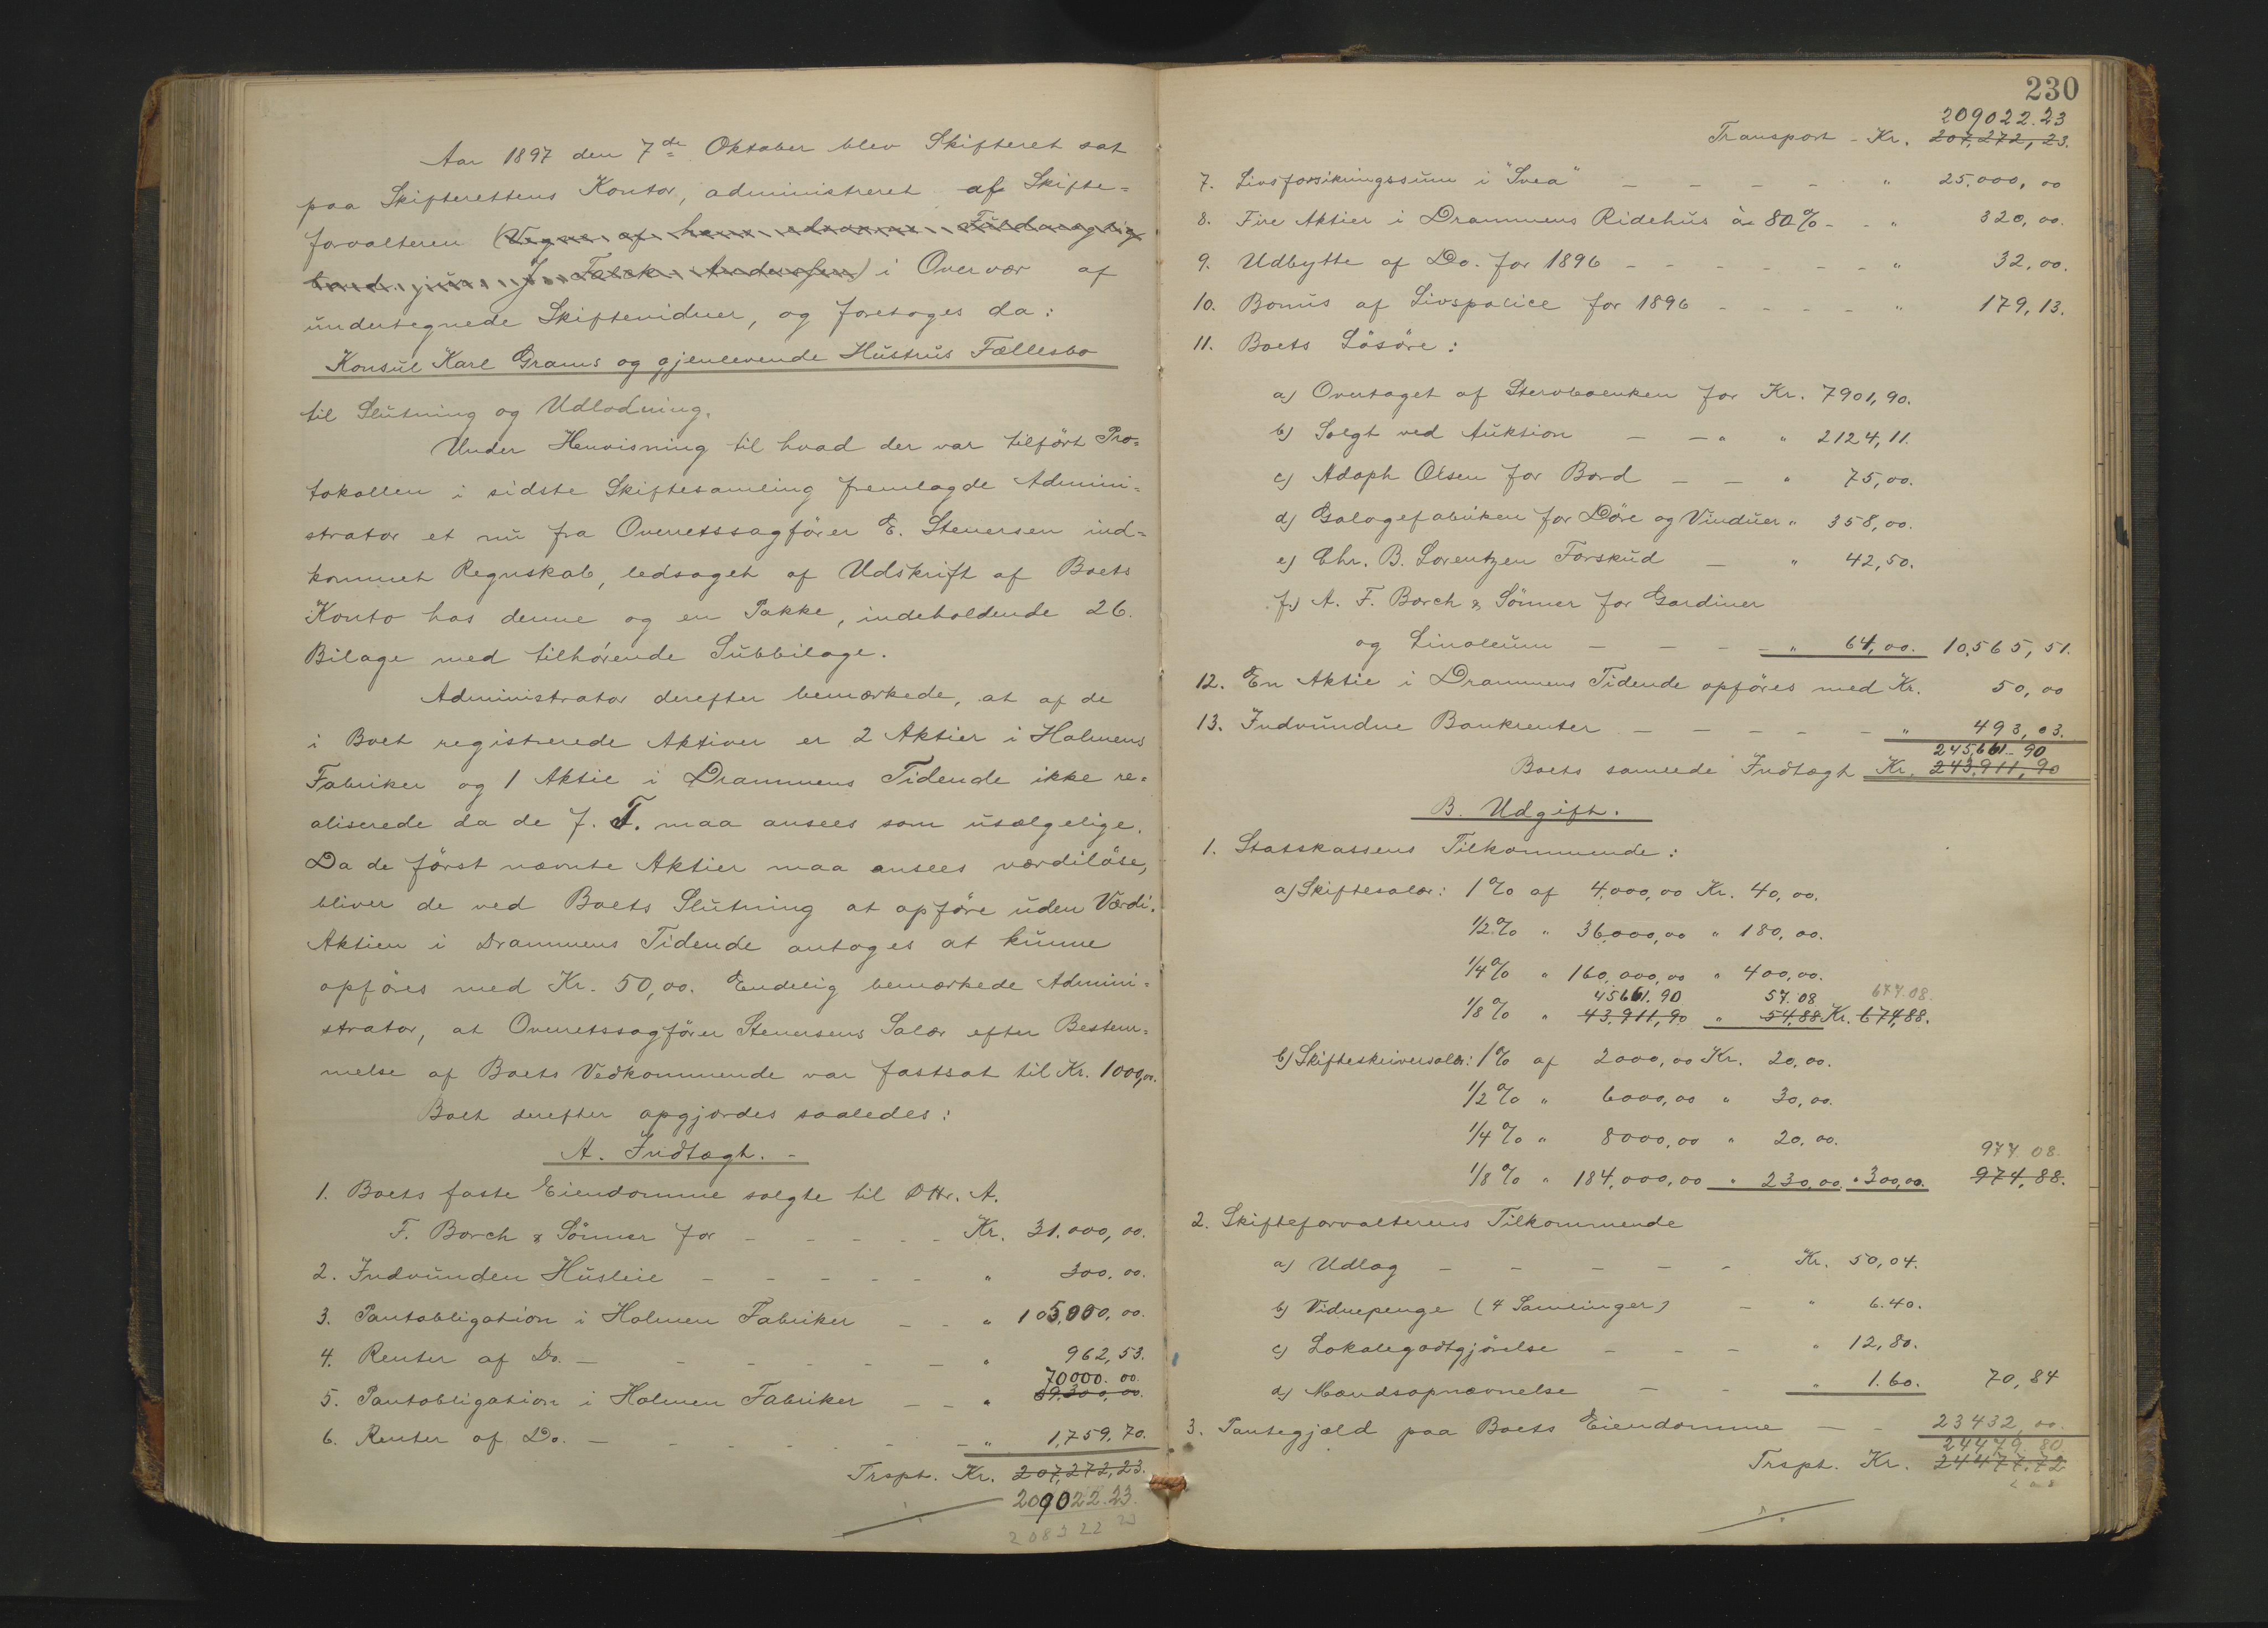 Aar 1897 den 7de Oktober blev Skifteret sat
paa Skifterettens Kontor, administreret af Skifte=
forvalteren (Vegne af hans
J. Falck Anderssen) i Overvær af
undertegnede Skiftevidner, og foretoges da:
Konsul Karl Grams og gjenlevende Hustrus Fællesbo
til Slutning og Udlodning.
Under Henvisning til hvad der var tilført Pro=
tokollen i sidste Skiftesamling fremlagde Admini=
strator et nu fra Overretssagfører E. Stenersen ind=
kommet Regnskab, ledsaget af Udskrift af Boets
Konto hos denne og en Pakke, indeholdende 26.
Bilage med tilhørende Subbilage.
Administrator derefter bemærkede, at af de
i Boet registrerede Aktiver er 2 Aktier i Holmens
Fabriker og 1 Aktie i Drammens Tidende ikke re=
aliserede da de f. T. maa ansees som usælgelige.
Da de først nævnte Aktier maa ansees værdiløse,
bliver de ved Boets Slutning at opføre uden Værdi.
Aktien i Drammens Tidende antoges at kunne
opføres med Kr. 50,00. Endelig bemærkede Admini=
strator, at Overretssagfører Stenersens Salær efter Bestem=
melse af Boets Vedkommende var fastsat til Kr. 1000,00.
Boet derefter opgjordes saaledes:
A. Indtægt. -
1. Boets faste Eiendomme solgte til DHr. A.
F. Borch & Sønner for - - - - - Kr. 31.000,00.
2. Indvunden Husleie - - - - - " 300,00.
3. Pantobligation i Holmen Fabriker - - " 105,000,00.
4. Renter af Do. - - - - - - - " 962,53.
70000.00
5. Pantobligation i Holmen Fabriker - - " 69,300,00.
6. Renter af Do. - - - - - - - " 1,759,70.
Trspt. Kr. 207,272,23.
209022.23.
208322 23
230
209022.23
Transport - Kr. 207,272,23.
7. Livsforsikringssum i "Svea" - - - - " 25.000,00
8. Fire Aktier i Drammens Ridehus à 80% - - " 320,00.
9. Udbytte af Do. for 1896 - - - - - - - " 32,00.
10. Bonus af Livspolice for 1896 - - - - " 179,13.
11. Boets Løsøre:
a) Overtaget af Stervboenken for Kr. 7901,90.
b) Solgt ved Auktion - - " " 2124,11.
c) Adoph Olsen for Bord - - " 75,00.
d) Galogefabriken for Døre og Vinduer " 358,00.
e) Chr. B. Lorentzen Forskud - " 42,50.
f) A. F. Borch & Sønner for Gardiner
og Linoleum - - - - " 64,00. 10,565,51.
12. En Aktie i Drammens Tidende opføres med Kr. 50,00
13. Indvundne Bankrenter - - - - - " 493,03.
245,661.90
Boets samlede Indtægt Kr. 243,911,90
B. Udgift.
1. Statskassens Tilkommende:
a) Skiftesalær: 1% af 4,000,00 Kr. 40,00.
1/2% " 36,000,00 " 180,00.
1/4% " 160,000,00 " 400,00.
45661.90 57.08 677.08.
1/8% " 43,911,90 " 54,88 Kr. 674,88.
b) Skifteskriversalær: 1% af 2000,00 Kr. 20,00.
1/2% " 6000,00 " 30,00.
1/4% " 8000,00 " 20,00.
977.08.
1/8% " 184,000,00 " 230,00. " 300,00. 974,88.
2. Skifteforvalterens Tilkommende
a) Udlæg - - - - - Kr. 50,04.
b) Vidnepenge (4 Samlinger) - " 6.40.
c) Lokalegodtgjørelse - - - " 12,80.
d) Mandsopnævnelse - - " 1.60. 70,84
3. Pantegjæld paa Boets Eiendomme - - 23432,00.
24479.80
Trspt. Kr. 24477,72